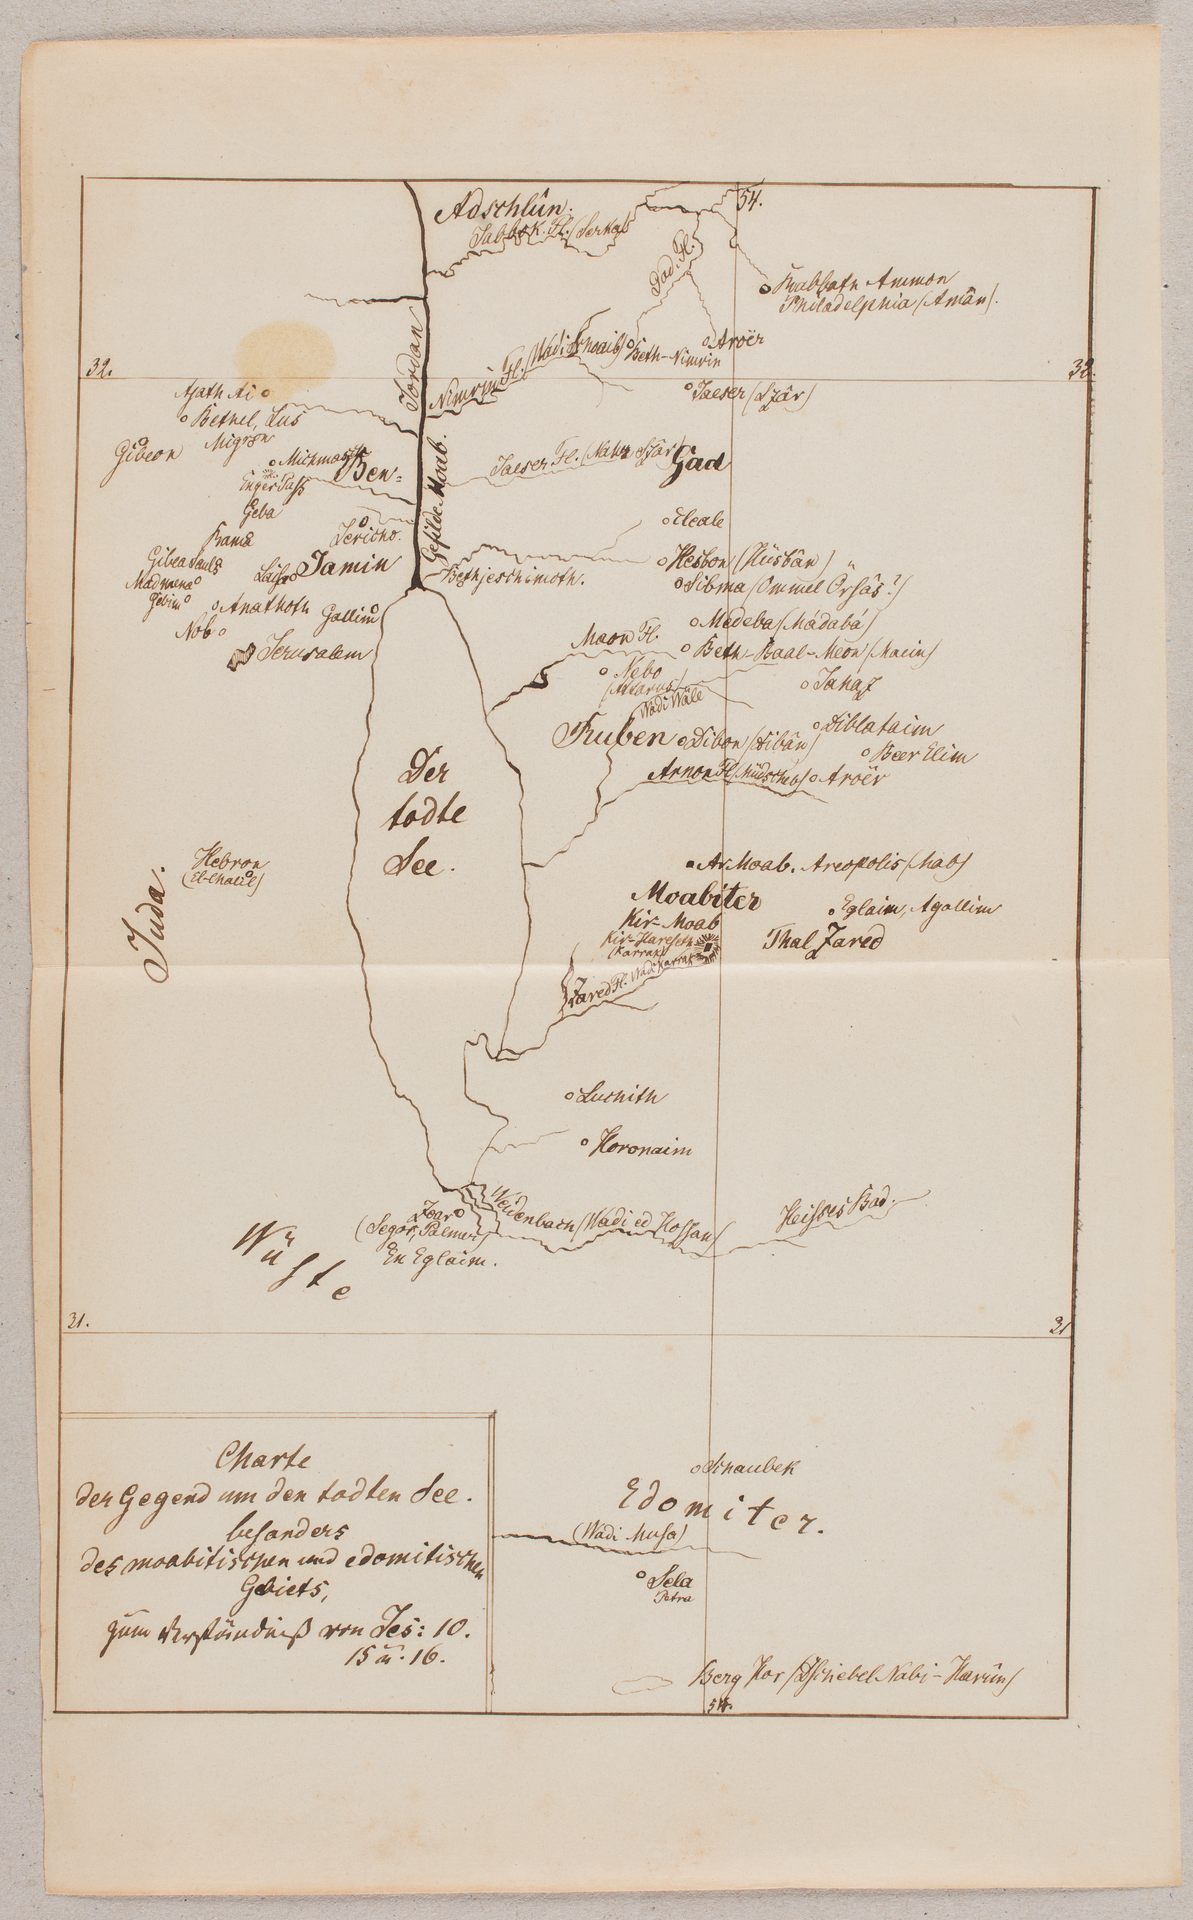 Adschlûn.
Jabbok. Fl. (Serka)
54.
Gad. Fl.
Rabbath Ammon
Philadelphia (Amân).
Jordan
Nimrim Fl. (Wadi Schoaib)
Beth-Nimrin
Aroër
32.
32.
Ajath Ai
Bethel, Lus
Jaeser (Szâr)
Migron
Gibeon
Michmasch
Enger Paß
Ben=
Gefilde Moab.
Jaeser Fl. (Nahr Szâr)
Gad
Geba
Jericho.
Eleale
Rama
Gibea Sauls
Lais
Jamin
Madmena
Gebim
Anathoth
Gallim
Nob
Jerusalem
Bethjeschimoth.
Hesbon (Hüsbân)
Sibma (Ommel Örsâs?)
Medeba (Mádabá)
Maon Fl.
Beth-Baal-Meon (Maein)
Nebo
(Attarus)
Wadi Wâle
Jahaz
Ruben
Dibon (Dibân)
Diblataim
Beer Elim
Arnon Fl. (Müdscheb)
Aroër
Der
todte
See.
Hebron
(El-Chalîl)
Juda.
Ar Moab. Areopolis (Mab)
Moabiter
Eglaim, Agallim
Kir-Moab
Kir-Hareseth
(Karrak)
Thal Zared
Zared Fl. Wadi Karrak
Luchith
Horonaim
Weidenbach (Wadi ed Hossan)
Heisses Bad.
Zoar
(Segor, Palmer)
En Eglaim.
Wüste
31.
31
Charte
der Gegend um den todten See.
besonders
des moabitischen und edomitischen
Gebiets,
zum Verständniß von Jes: 10.
15 u. 16.
Schaubek
Edomiter.
(Wadi Musa)
Sela
Petra
Berg Hor (Dschebel Nabi-Harûn)
54.